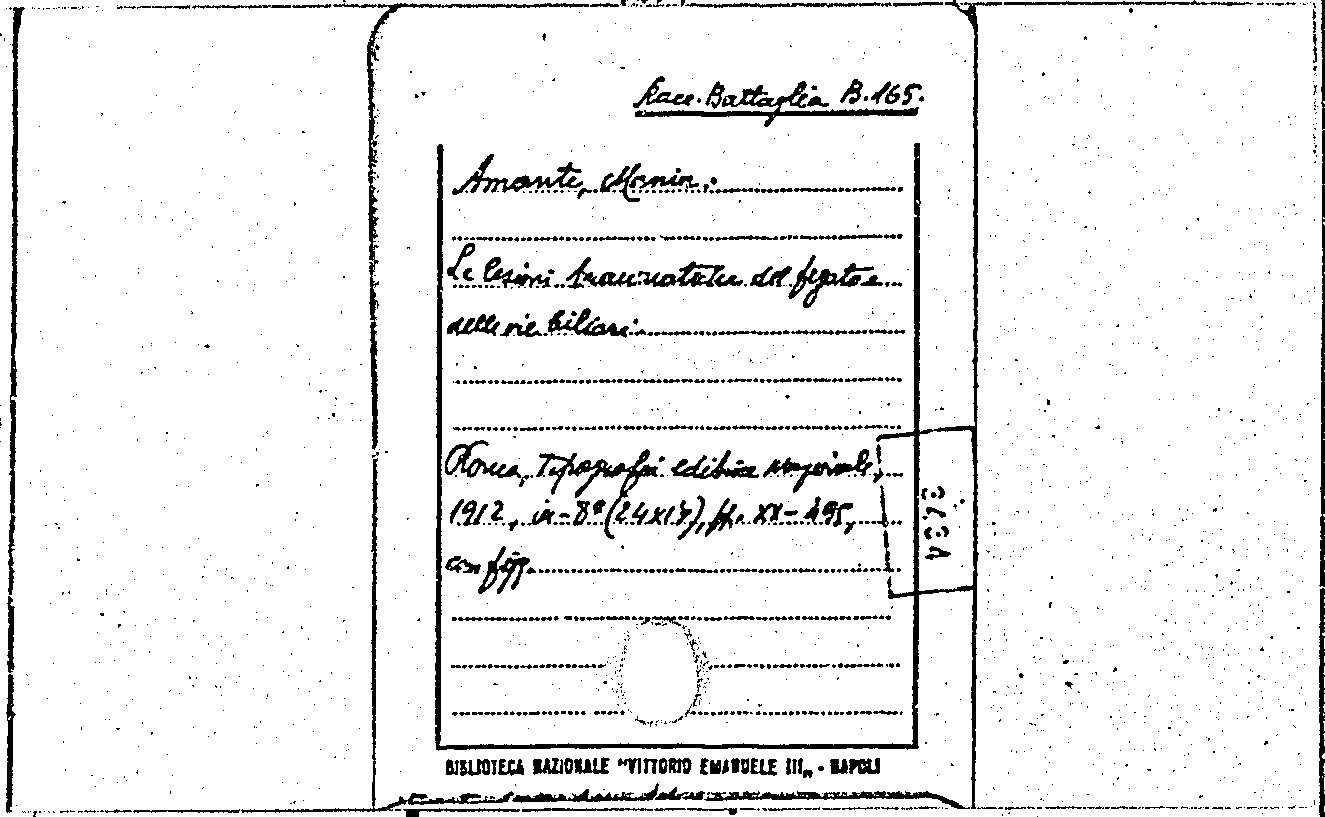 Racc. Battaglia B. 165.
Amante, Manin.
Le lesioni traumatiche del fegato e
delle vie biliari.
Roma, Tipografia editrice nazionale,
1912, in-8° (24x17), pp. XX-495,
con figg.
BIBLIOTECA NAZIONALE "VITTORIO EMANUELE III„ - NAPOLI